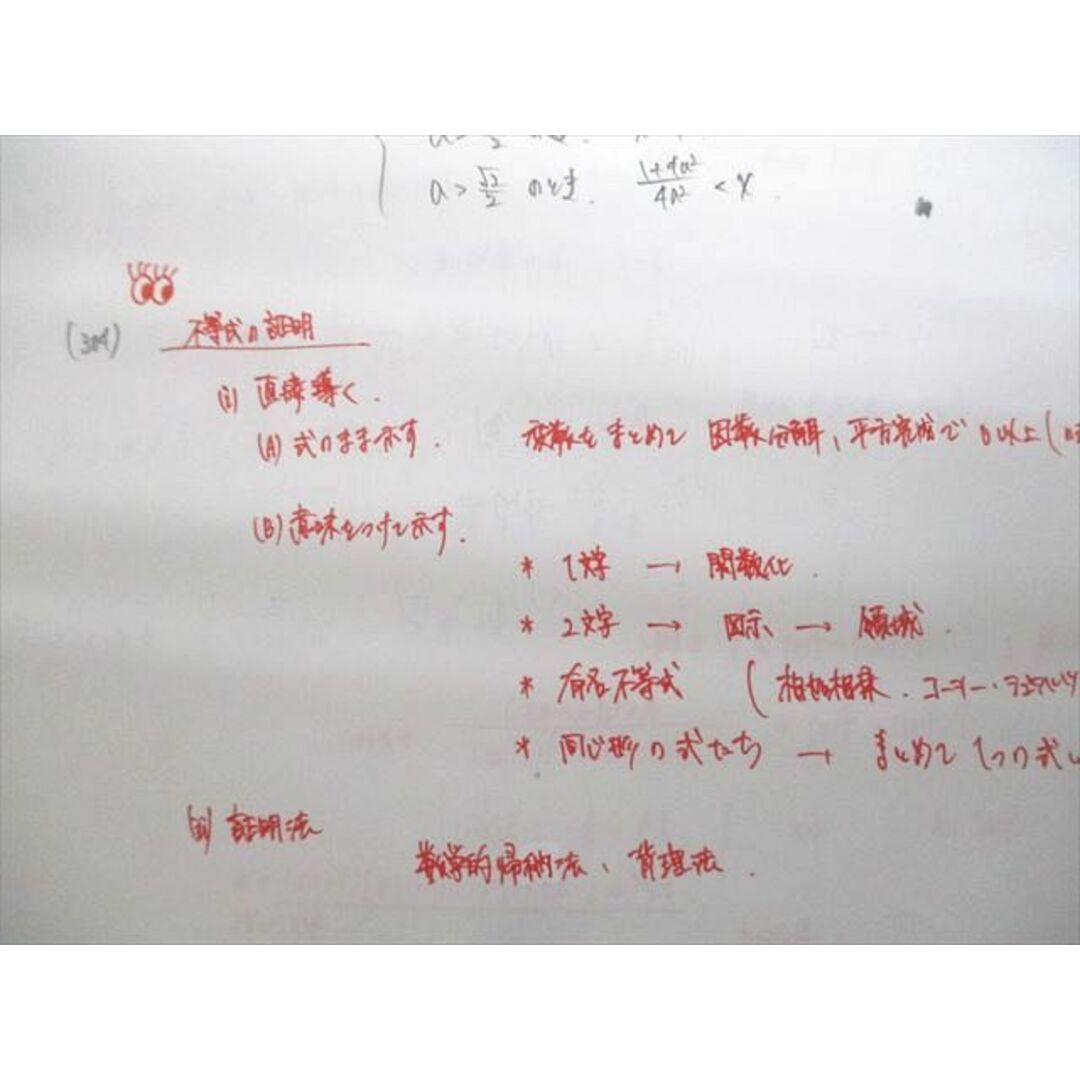 a > √2/2 のとき. (1+4a²)/4a² < x.
(304)
不等式の証明
(i) 直接導く.
(A) 式のまま示す. 変数をまとめて 因数分解、平方完成で 0以上(
(B) 意味をつけて示す.
* 1文字 → 関数化.
* 2文字 → 図示 → 領域.
* 有名不等式 (相加相乗. コーシー・シュワルツ
* 同じ形の式たち → まとめて 1つの式
(ii) 証明法
数学的帰納法、背理法.